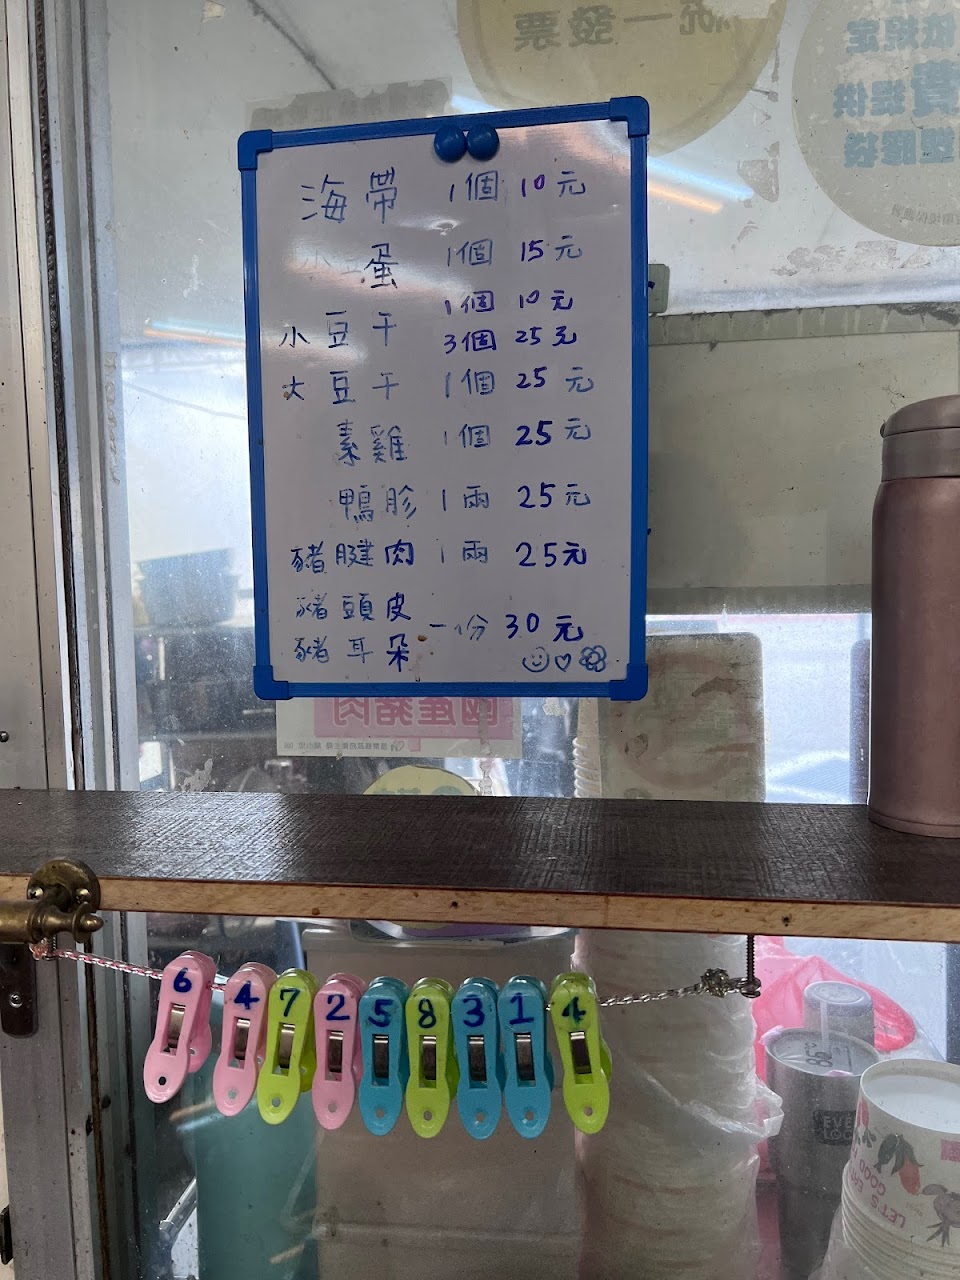 統一發票
依規定
費提供
塑膠袋
海帶 1個 10元
蛋 1個 15元
小豆干 1個 10元
3個 25元
大豆干 1個 25元
素雞 1個 25元
鴨胗 1兩 25元
豬腱肉 1兩 25元
豬頭皮
豬耳朵 一份 30元
國產豬肉
6 4 7 2 5 8 3 1 4
EVE
LOC
LET'S EAT
GOOD